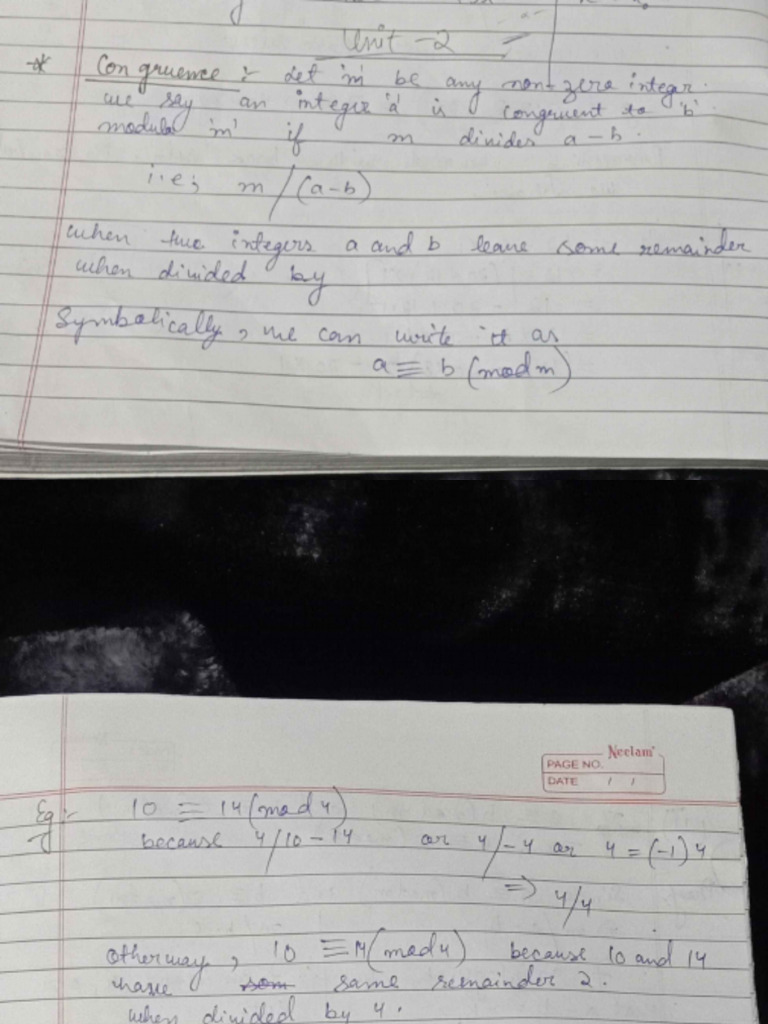 Unit - 2
* Congruence :- Let 'm' be any non-zero integr.
we say an integer 'a' is congruent to 'b'
modulo 'm' if m divides a-b.
i.e; m/(a-b)
when two integers a and b leave some remainder
when divided by
Symbolically, we can write it as
a ≡ b (mod m)
Neelam
PAGE NO.
DATE / /
Eg:- 10 ≡ 14 (mod 4)
because 4/10-14 or 4/-4 or 4 = (-1) 4
=> 4/4
Otherway, 10 ≡ 14 (mod 4) because 10 and 14
have som same remainder 2.
when divided by 4.